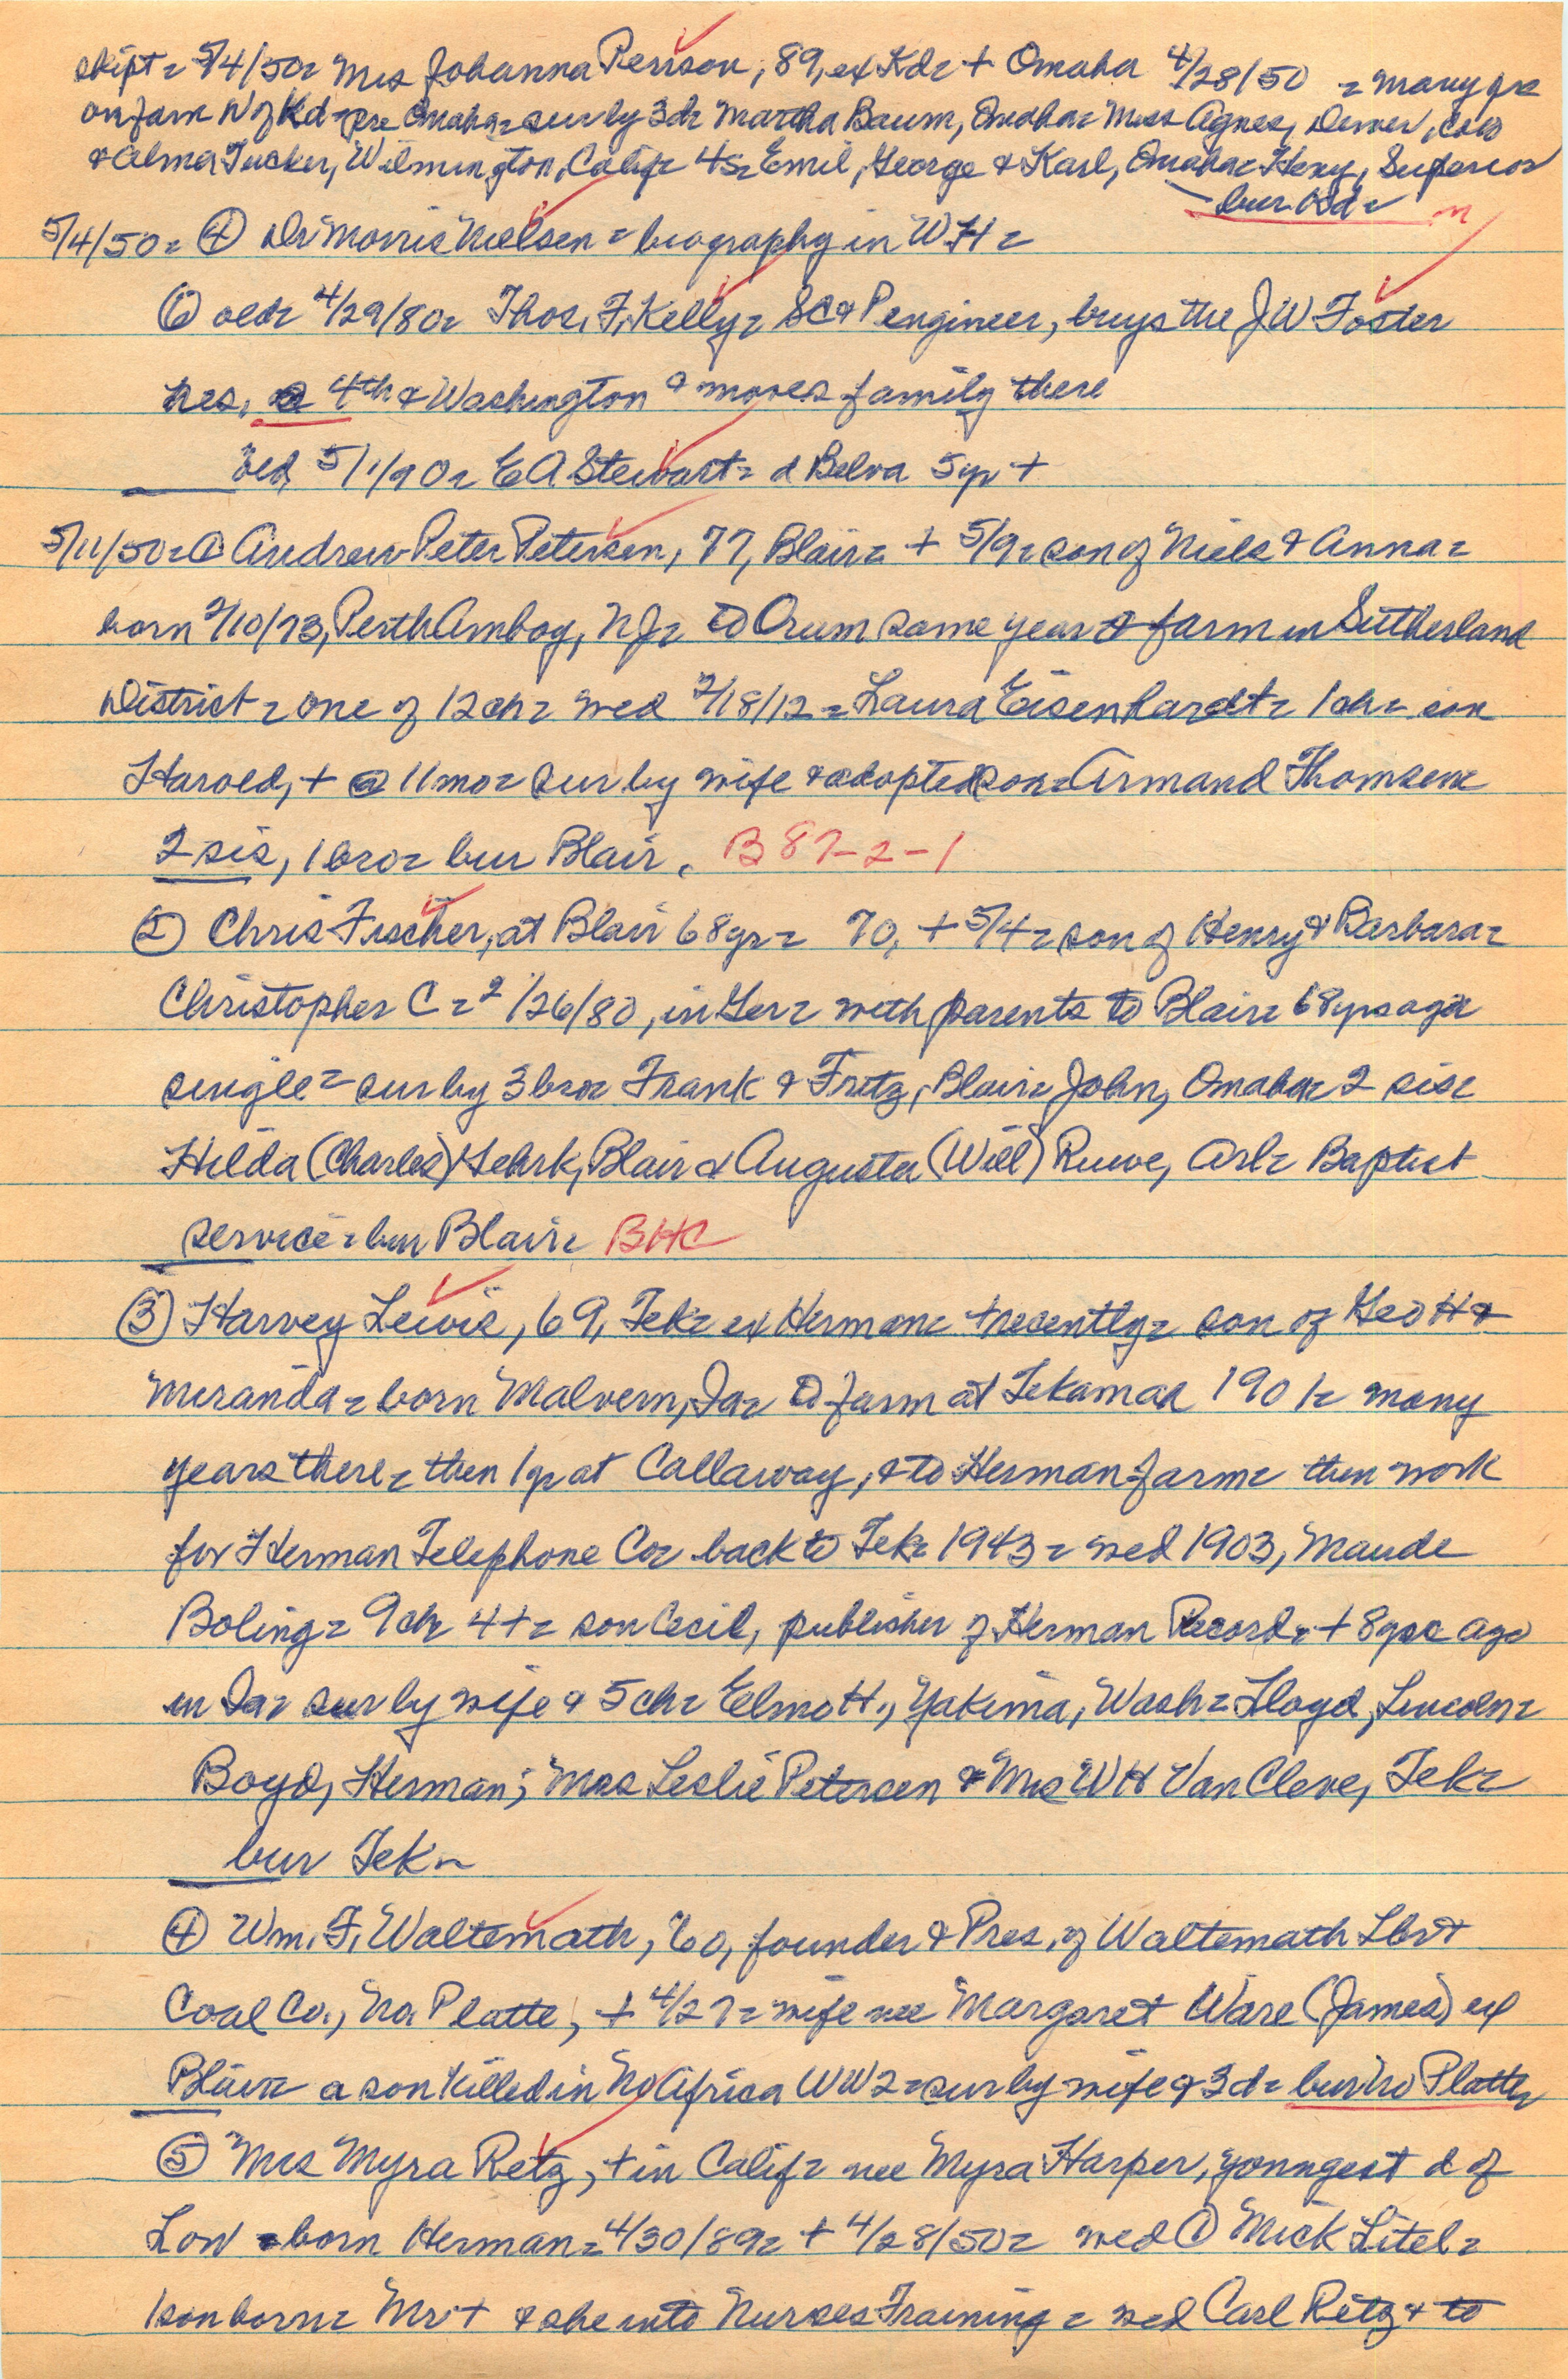 skipt = 5/4/50 = Mrs Johanna Person, 89, ex Kd = + Omaha 4/28/50 = many yrs
on farm N of Kd = pre Omaha = sur by 3d = Martha Baum, Omaha = Miss Agnes, Denver, Colo
& Alma Tucker, Wilmington, Calif = 4s = Emil, George & Karl, Omaha = Henry, Superior
bur Kd =
5/4/50 = ④ Dr Morris Nielsen = biography in WH =
⑥ old = 4/29/80 = Thos. F. Kelly = SC & P engineer, buys the JW Foster
res, @ 4th & Washington & moves family there
wed 5/1/90 = EA Stewart = d Belva 5yr +
5/11/50 = ① Andrew Peter Petersen, 77, Blair = + 5/9 = son of Niels & Anna =
born 2/10/73, Perth Amboy, NJ = to Orum same year & farm in Sutherland
District = one of 12 ch = wed 2/18/12 = Laura Eisenhardt = 1 ch = son
Harold, + @ 11 mo = sur by wife & adopted son = Armand Thomsen =
2 sis, 1 bro = bur Blair. B 87-2-1
② Chris Fischer, at Blair 68 yr = 70, + 5/4 = son of Henry & Barbara =
Christopher C = 2/26/80, in Ger = with parents to Blair = 68 yrs ago =
single = sur by 3 bro = Frank & Fritz, Blair = John, Omaha = 2 sis =
Hilda (Charles) Gehrk, Blair & Augusta (Will) Ruwe, Arl = Baptist
service = bur Blair = BHC
③ Harvey Lewis, 69, Tek = ex Herman = + recently = son of Geo H &
Miranda = born Malvern, Ia = to farm at Tekamah 1901 = many
years there = then 1 yr at Callaway, & to Herman farm = then work
for Herman Telephone Co = back to Tek = 1943 = wed 1903, Maude
Boling = 9 ch = 4 + = son Cecil, publisher of Herman Record = + 8 yrs ago
in Ia = sur by wife & 5 ch = Elmo H., Yakima, Wash = Lloyd, Lincoln =
Boyd, Herman; Mrs Leslie Petersen & Mrs WH Van Cleve, Tek =
bur Tek =
④ Wm. F. Waltemath, 60, founder & Pres. of Waltemath Lbr &
Coal Co., No Platte, + 4/27 = wife nee Margaret Ware (James) ex
Blair = a son killed in No Africa WW2 = sur by wife & 3 d = bur No Platte
⑤ Mrs Myra Retz, + in Calif = nee Myra Harper, youngest d of
Low = born Herman = 4/30/89 = + 4/28/50 = wed ① Mick Litel =
1 son born = Mr + & she into Nurses Training = wed Carl Retz & to